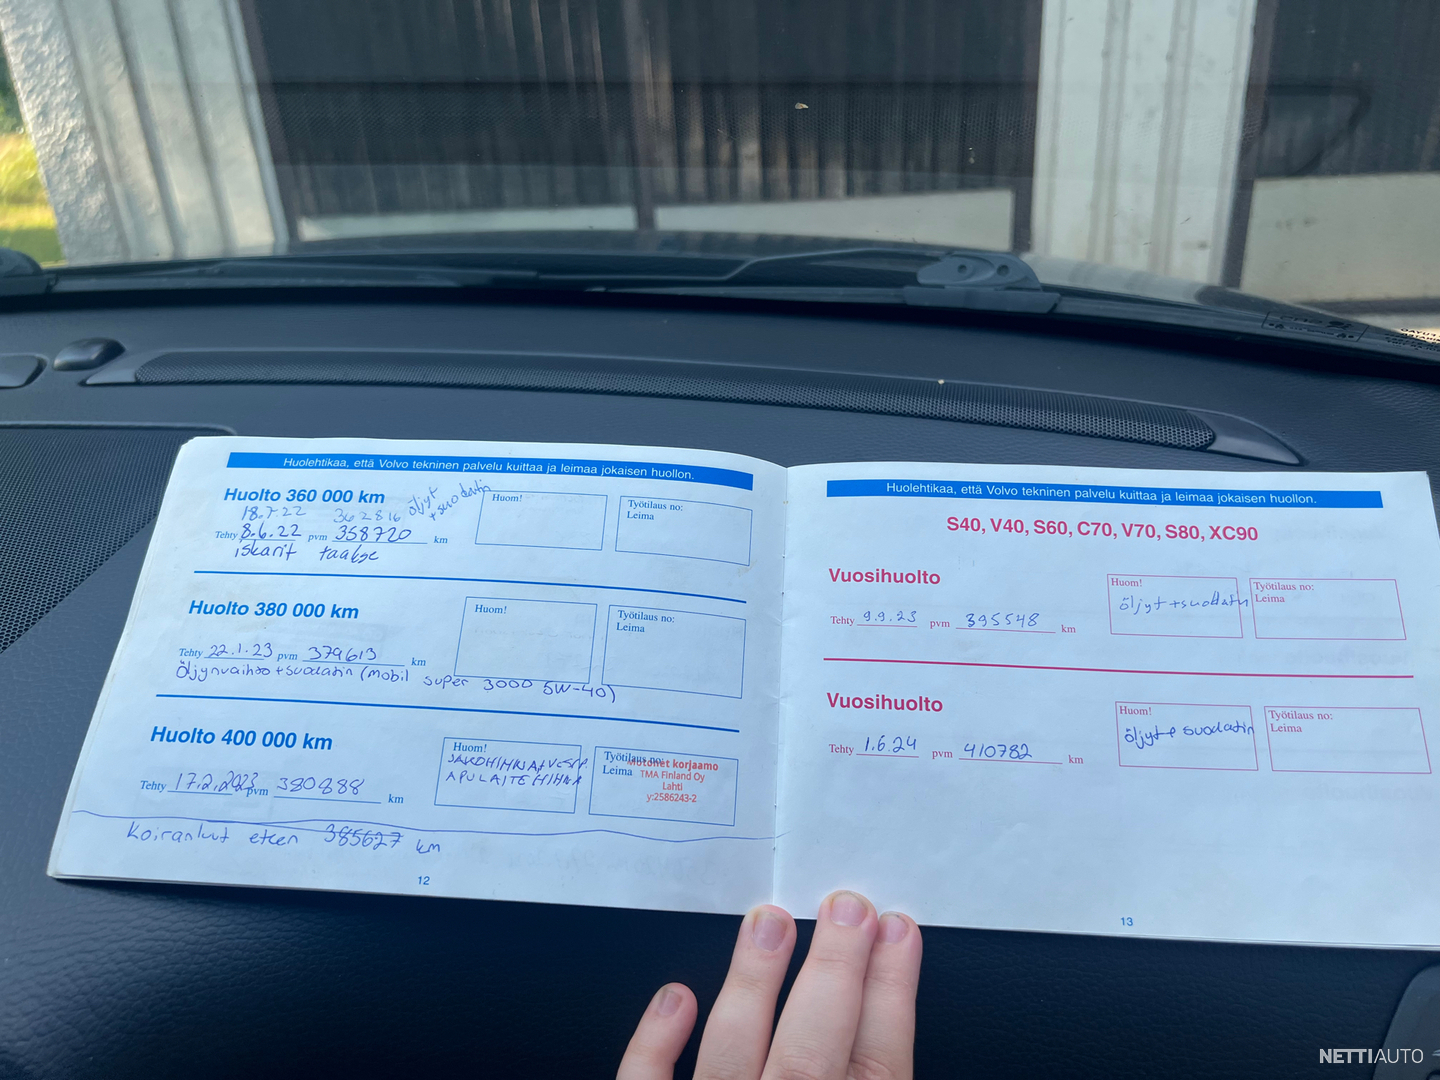 Huolehtikaa, että Volvo tekninen palvelu kuittaa ja leimaa jokaisen huollon.
Huolto 360 000 km
18.7.22 362816 öljyt
+suodatin
Tehty 8.6.22 pvm 358720 km
iskarit taakse
Huom!
Työtilaus no:
Leima
Huolto 380 000 km
Tehty 22.1.23 pvm 379613 km
Öljynvaihto+suodatin (mobil super 3000 5W-40)
Huom!
Työtilaus no:
Leima
Huolto 400 000 km
Tehty 17.2.2023 pvm 380888 km
Huom!
JAKOHIHNA+VESIP
APULAITEHIHNA
Työtilaus no:
Leima
Motonet korjaamo
TMA Finland Oy
Lahti
y:2586243-2
Koiranluut eteen 385627 km
12
Huolehtikaa, että Volvo tekninen palvelu kuittaa ja leimaa jokaisen huollon.
S40, V40, S60, C70, V70, S80, XC90
Vuosihuolto
Tehty 9.9.23 pvm 395548 km
Huom!
öljyt+suodatin
Työtilaus no:
Leima
Vuosihuolto
Tehty 1.6.24 pvm 410782 km
Huom!
öljyt+suodatin
Työtilaus no:
Leima
13
NETTIAUTO